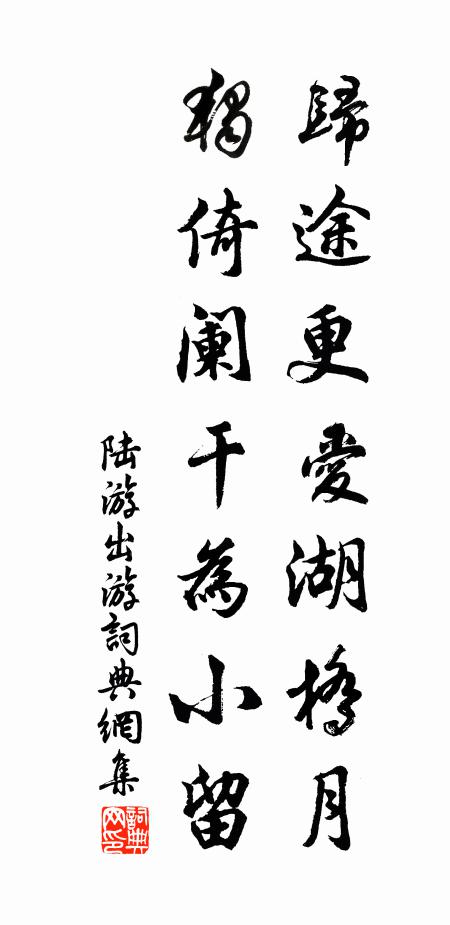 歸途更愛湖橋月
獨倚闌干為小留
陆游出游詞典網集
詞典网印